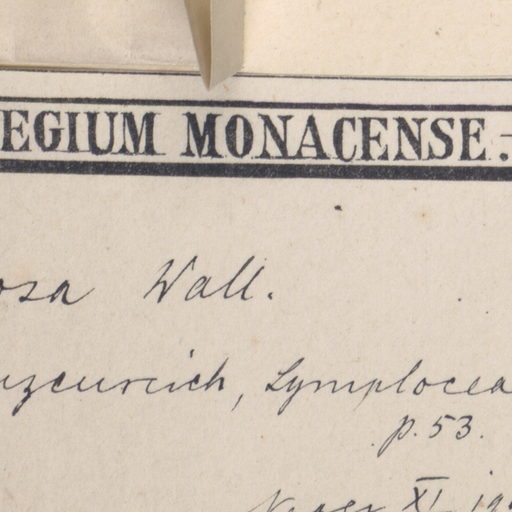 EGIUM MONACENSE.
osa Wall.
uzcureich, Symplocea
p. 53.
XI. 19